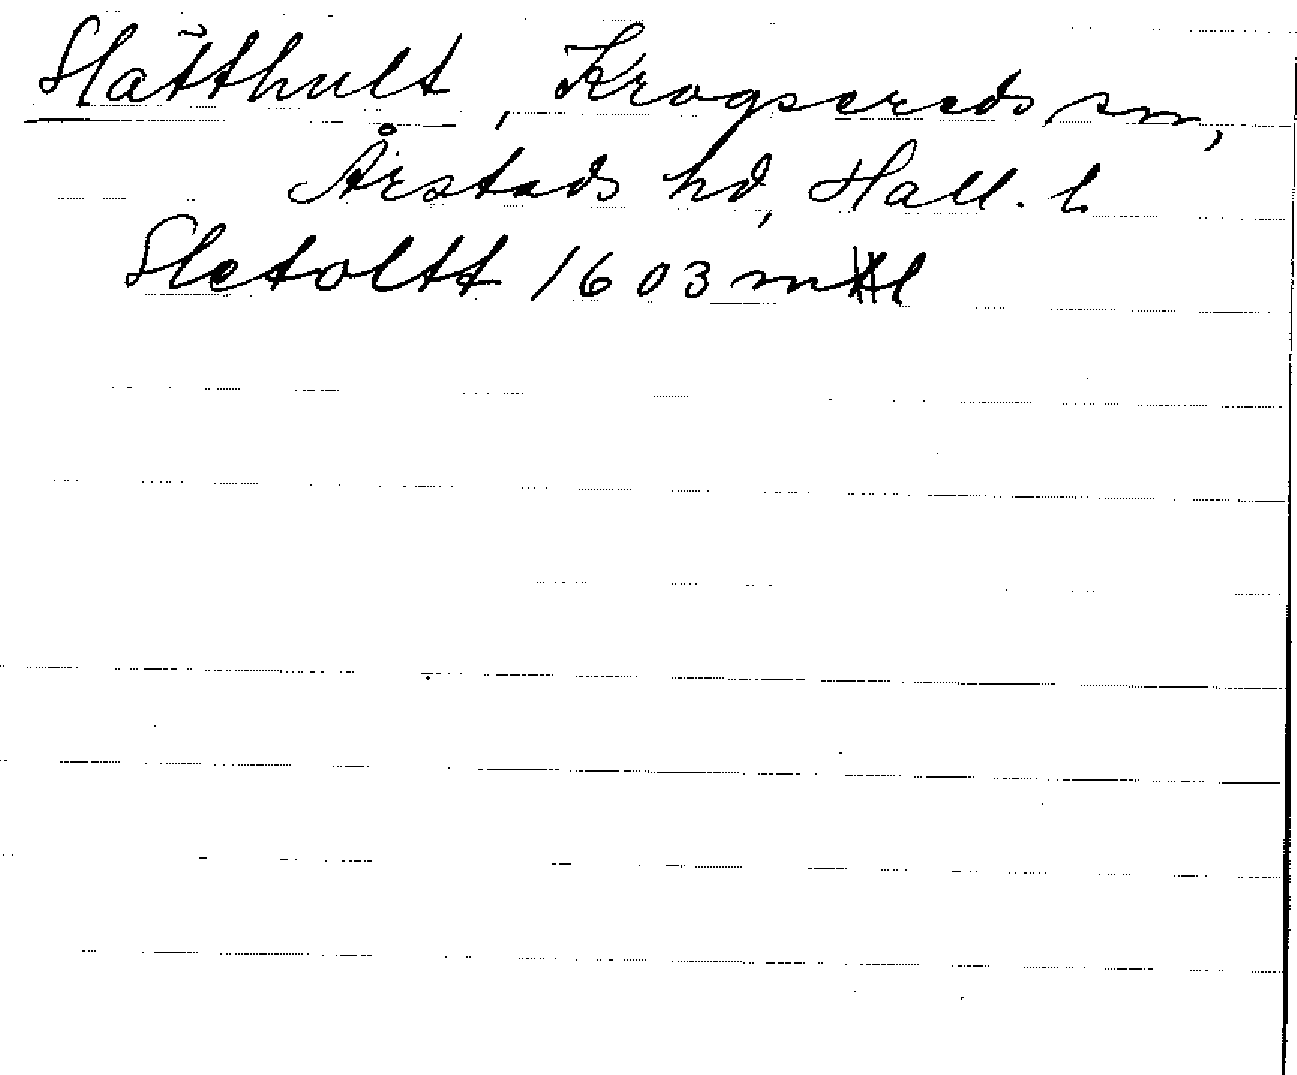 Slätthult, Krogsereds sn,
Årstads hd, Hall. l.
Sletoltt 1603 mtl